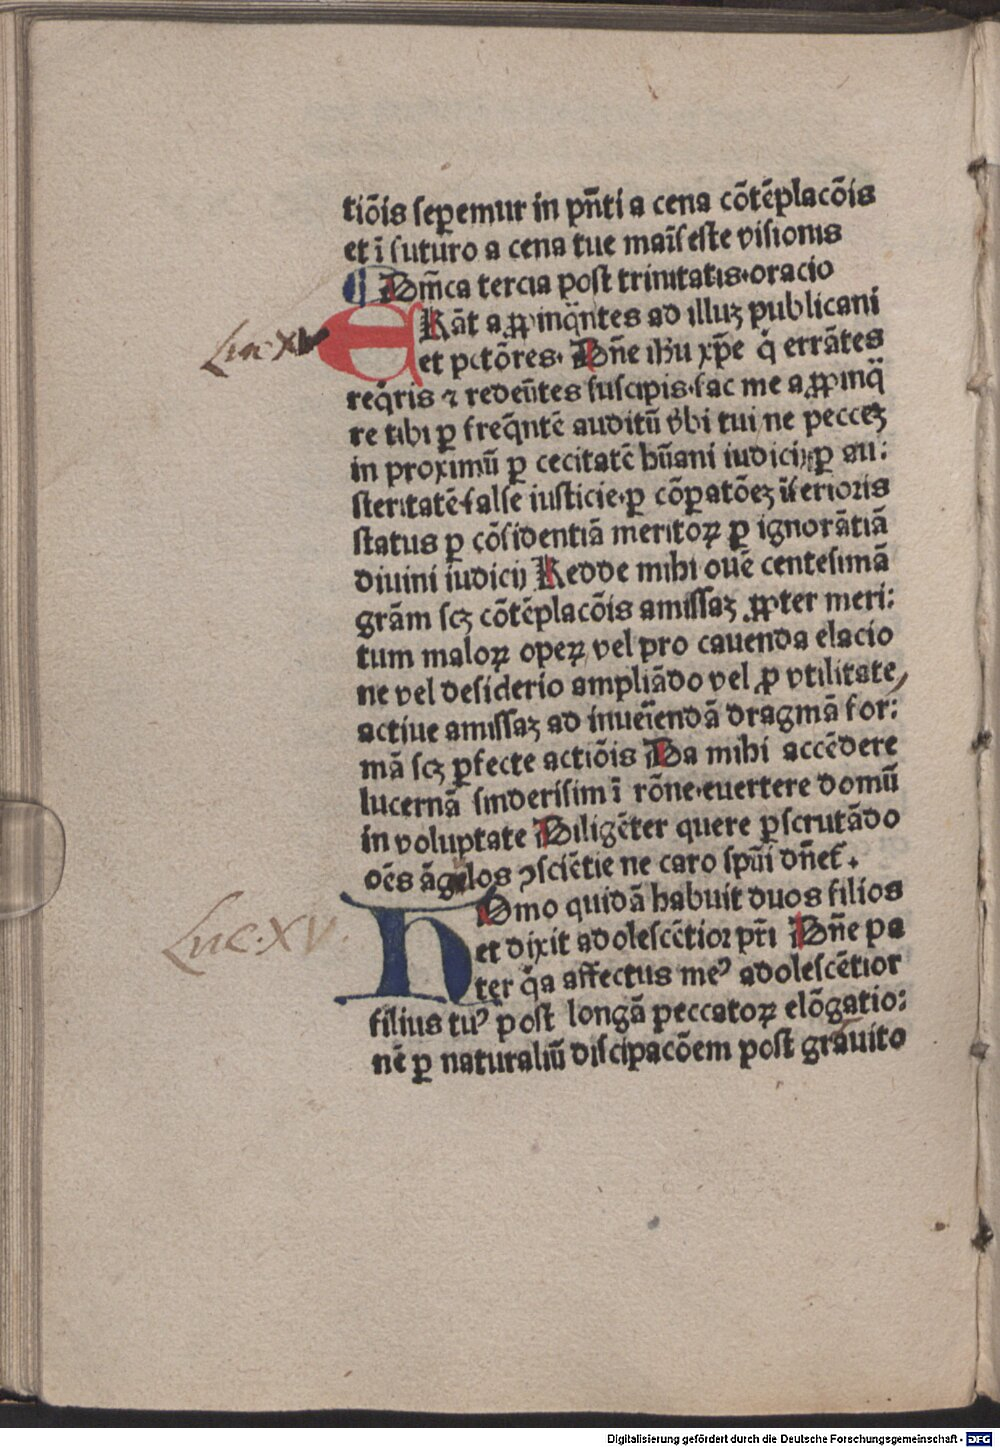 tiõis seꝑemur in pñti a cena cõtẽplacõis
et ĩ futuro a cena tue maĩfeste visionis
¶ Dm̃ca tercia post trinitatis·oracio
Luc XV
ERãt aꝓpinq̃ntes ad illuꝫ publicani
et pctõres· Dñe ihu xp̃e q̇ errãtes
req̇ris ⁊ redeũtes suscipis·fac me aꝓpinq̃
re tibi ꝑ freq̃ntẽ auditũ v̾bi tui ne pecceꝫ
in proximũ ꝑ cecitatẽ hũani iudicij·ꝑ au:
steritatẽ·false iusticie·ꝑ cõꝑatõeꝫ ĩferioris
status ꝑ cõfidentiã meritoꝝ ꝑ ignorãtiã
diuini iudicij Redde mihi ouẽ centesimã
grãm scꝫ cõtẽplacõis amissaꝫ ꝓpter meri:
tum maloꝝ opeꝝ vel pro cauenda elacio
ne vel desiderio ampliãdo vel ꝓ vtilitate
actiue amissaꝫ ad inueĩendã dragmã for:
mã scꝫ ꝑfecte actiõis Da mihi accẽdere
lucernã sinderisim ĩ rõne·euertere domũ
in voluptate Diligẽter quere ꝑscrutãdo
oẽs ãgulos ꝯsciẽtie ne caro spũi dñet̃.
Luc·XV·
HOmo quidã habuit duos filios
et dixit adolescẽtior pr̃i Dñe pa
ter q̃a affectus meꝰ adolescẽtior
filius tuꝰ post longã peccatoꝝ elõgatio:
nẽ ꝑ naturaliũ discipacõem post grauito
Digitalisierung gefördert durch die Deutsche Forschungsgemeinschaft - DFG